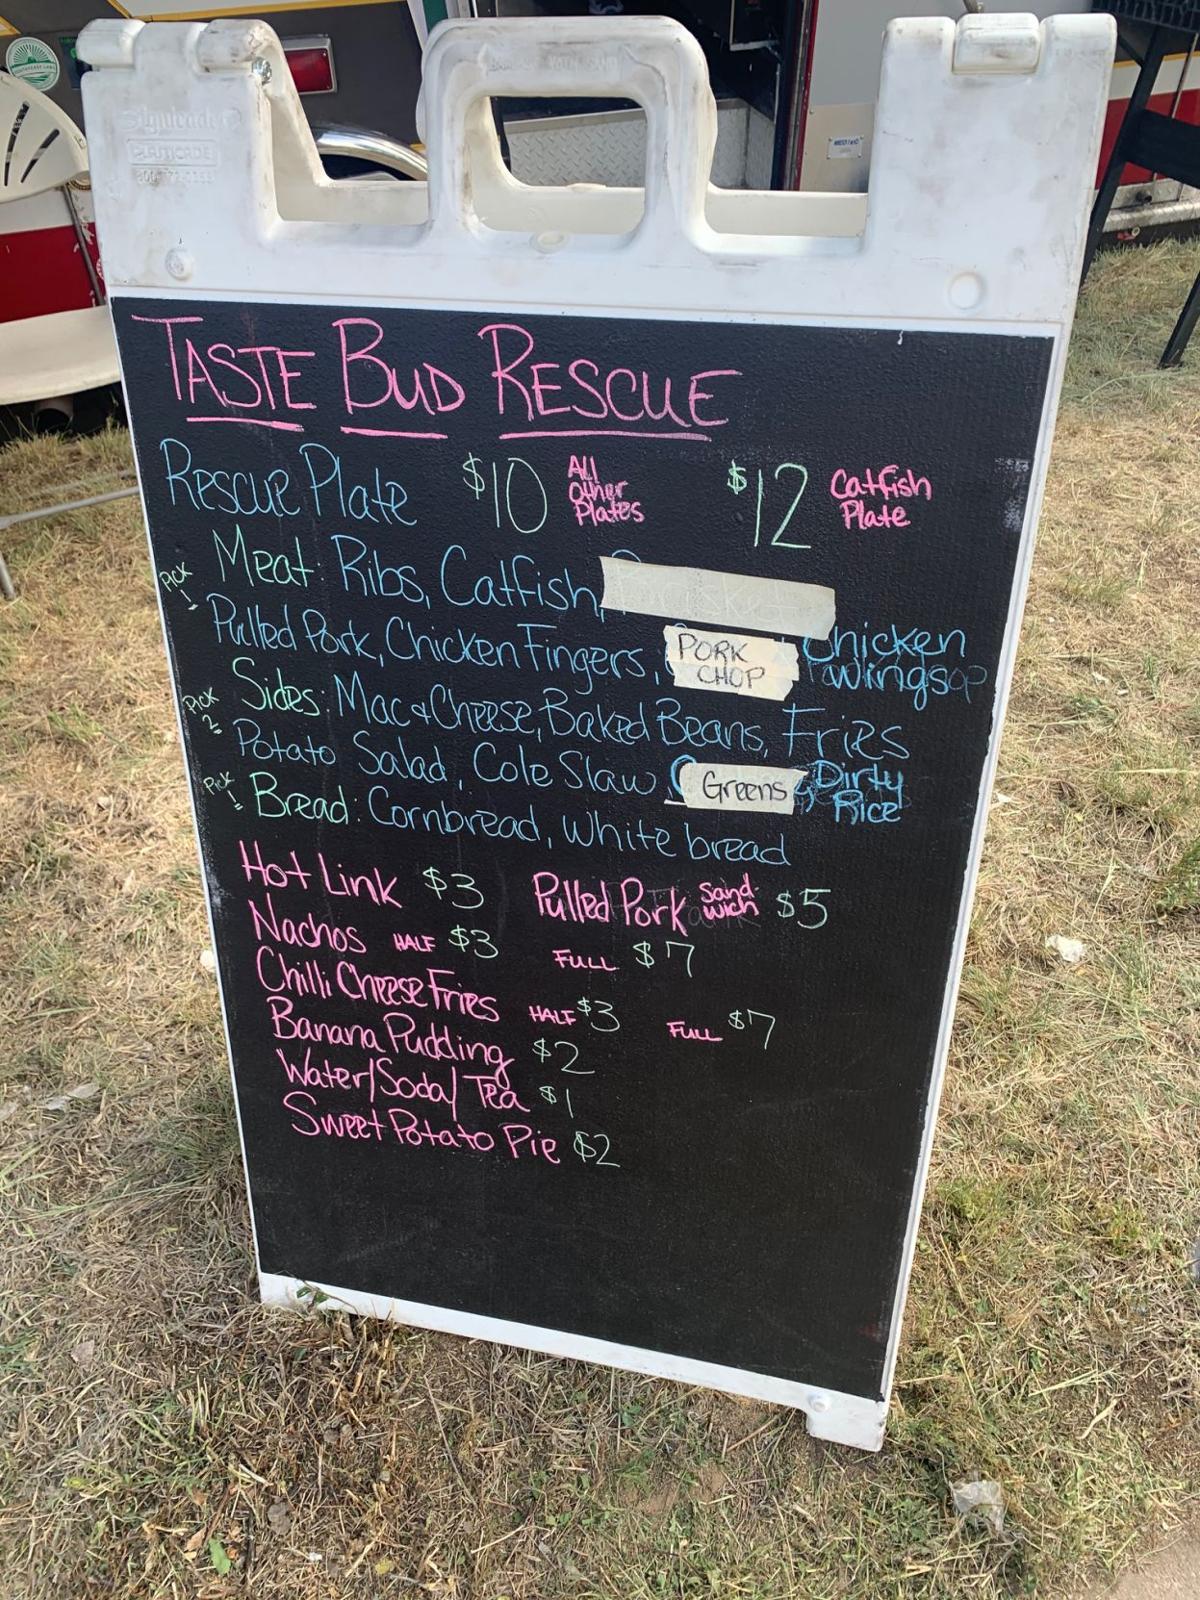 TASTE BUD RESCUE
Rescue Plate $10 All Other Plates $12 Catfish Plate
Pick 1 Meat: Ribs, Catfish,
Pulled Pork, Chicken Fingers, PORK CHOP Chicken wings
Pick 2 Sides: Mac & Cheese, Baked Beans, Fries
Potato Salad, Cole Slaw, Greens, Dirty Rice
Pick 1 Bread: Cornbread, White bread
Hot Link $3 Pulled Pork Sandwich $5
Nachos HALF $3 FULL $7
Chilli Cheese Fries HALF $3 FULL $7
Banana Pudding $2
Water/Soda/Tea $1
Sweet Potato Pie $2